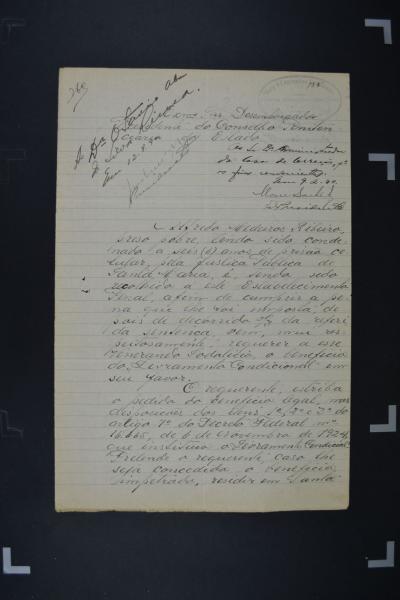 Exmo. Snr. Desembargador
Presidente do Conselho Peniten
ciario do Estado.
Ao Sr. Dr. Administrador
da Casa de Correição, p.ª
os fins convenientes.
Alfredo Medeiros Ribeiro,
preso pobre, tendo sido conde-
nado a seis (6) anos de prisão ce
lular, pela justiça Publica de
Santa Maria, e, tendo sido
recolhido a este Estabelecimento
Penal, afim de cumprir a pe-
na que lhe foi imposta, de-
pois de decorrido da referi-
da sentença, vem, mui res-
peitosamente, requerer a esse
Venerando Sodalicio, o beneficio
do Livramento Condicional em
seu favor.
O requerente, estriba
o pedido do beneficio legal, nas
disposições dos itens 1º, 2º e 3º do
artigo 1º do Decreto Federal nº
16.665, de 6 de Novembro de 1924,
que instituiu o Livramento Condicional.
Pretende o requerente, caso lhe
seja concedido o beneficio
impetrado, residir em Santa